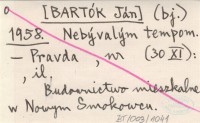 [BARTÓK Ján] (bj.)
1958. Nebývalým tempom.
— Pravda, nr (30 XI):
, il.
Budownictwo mieszkalne
w Nowym Smokowcu.
ET/003/1041